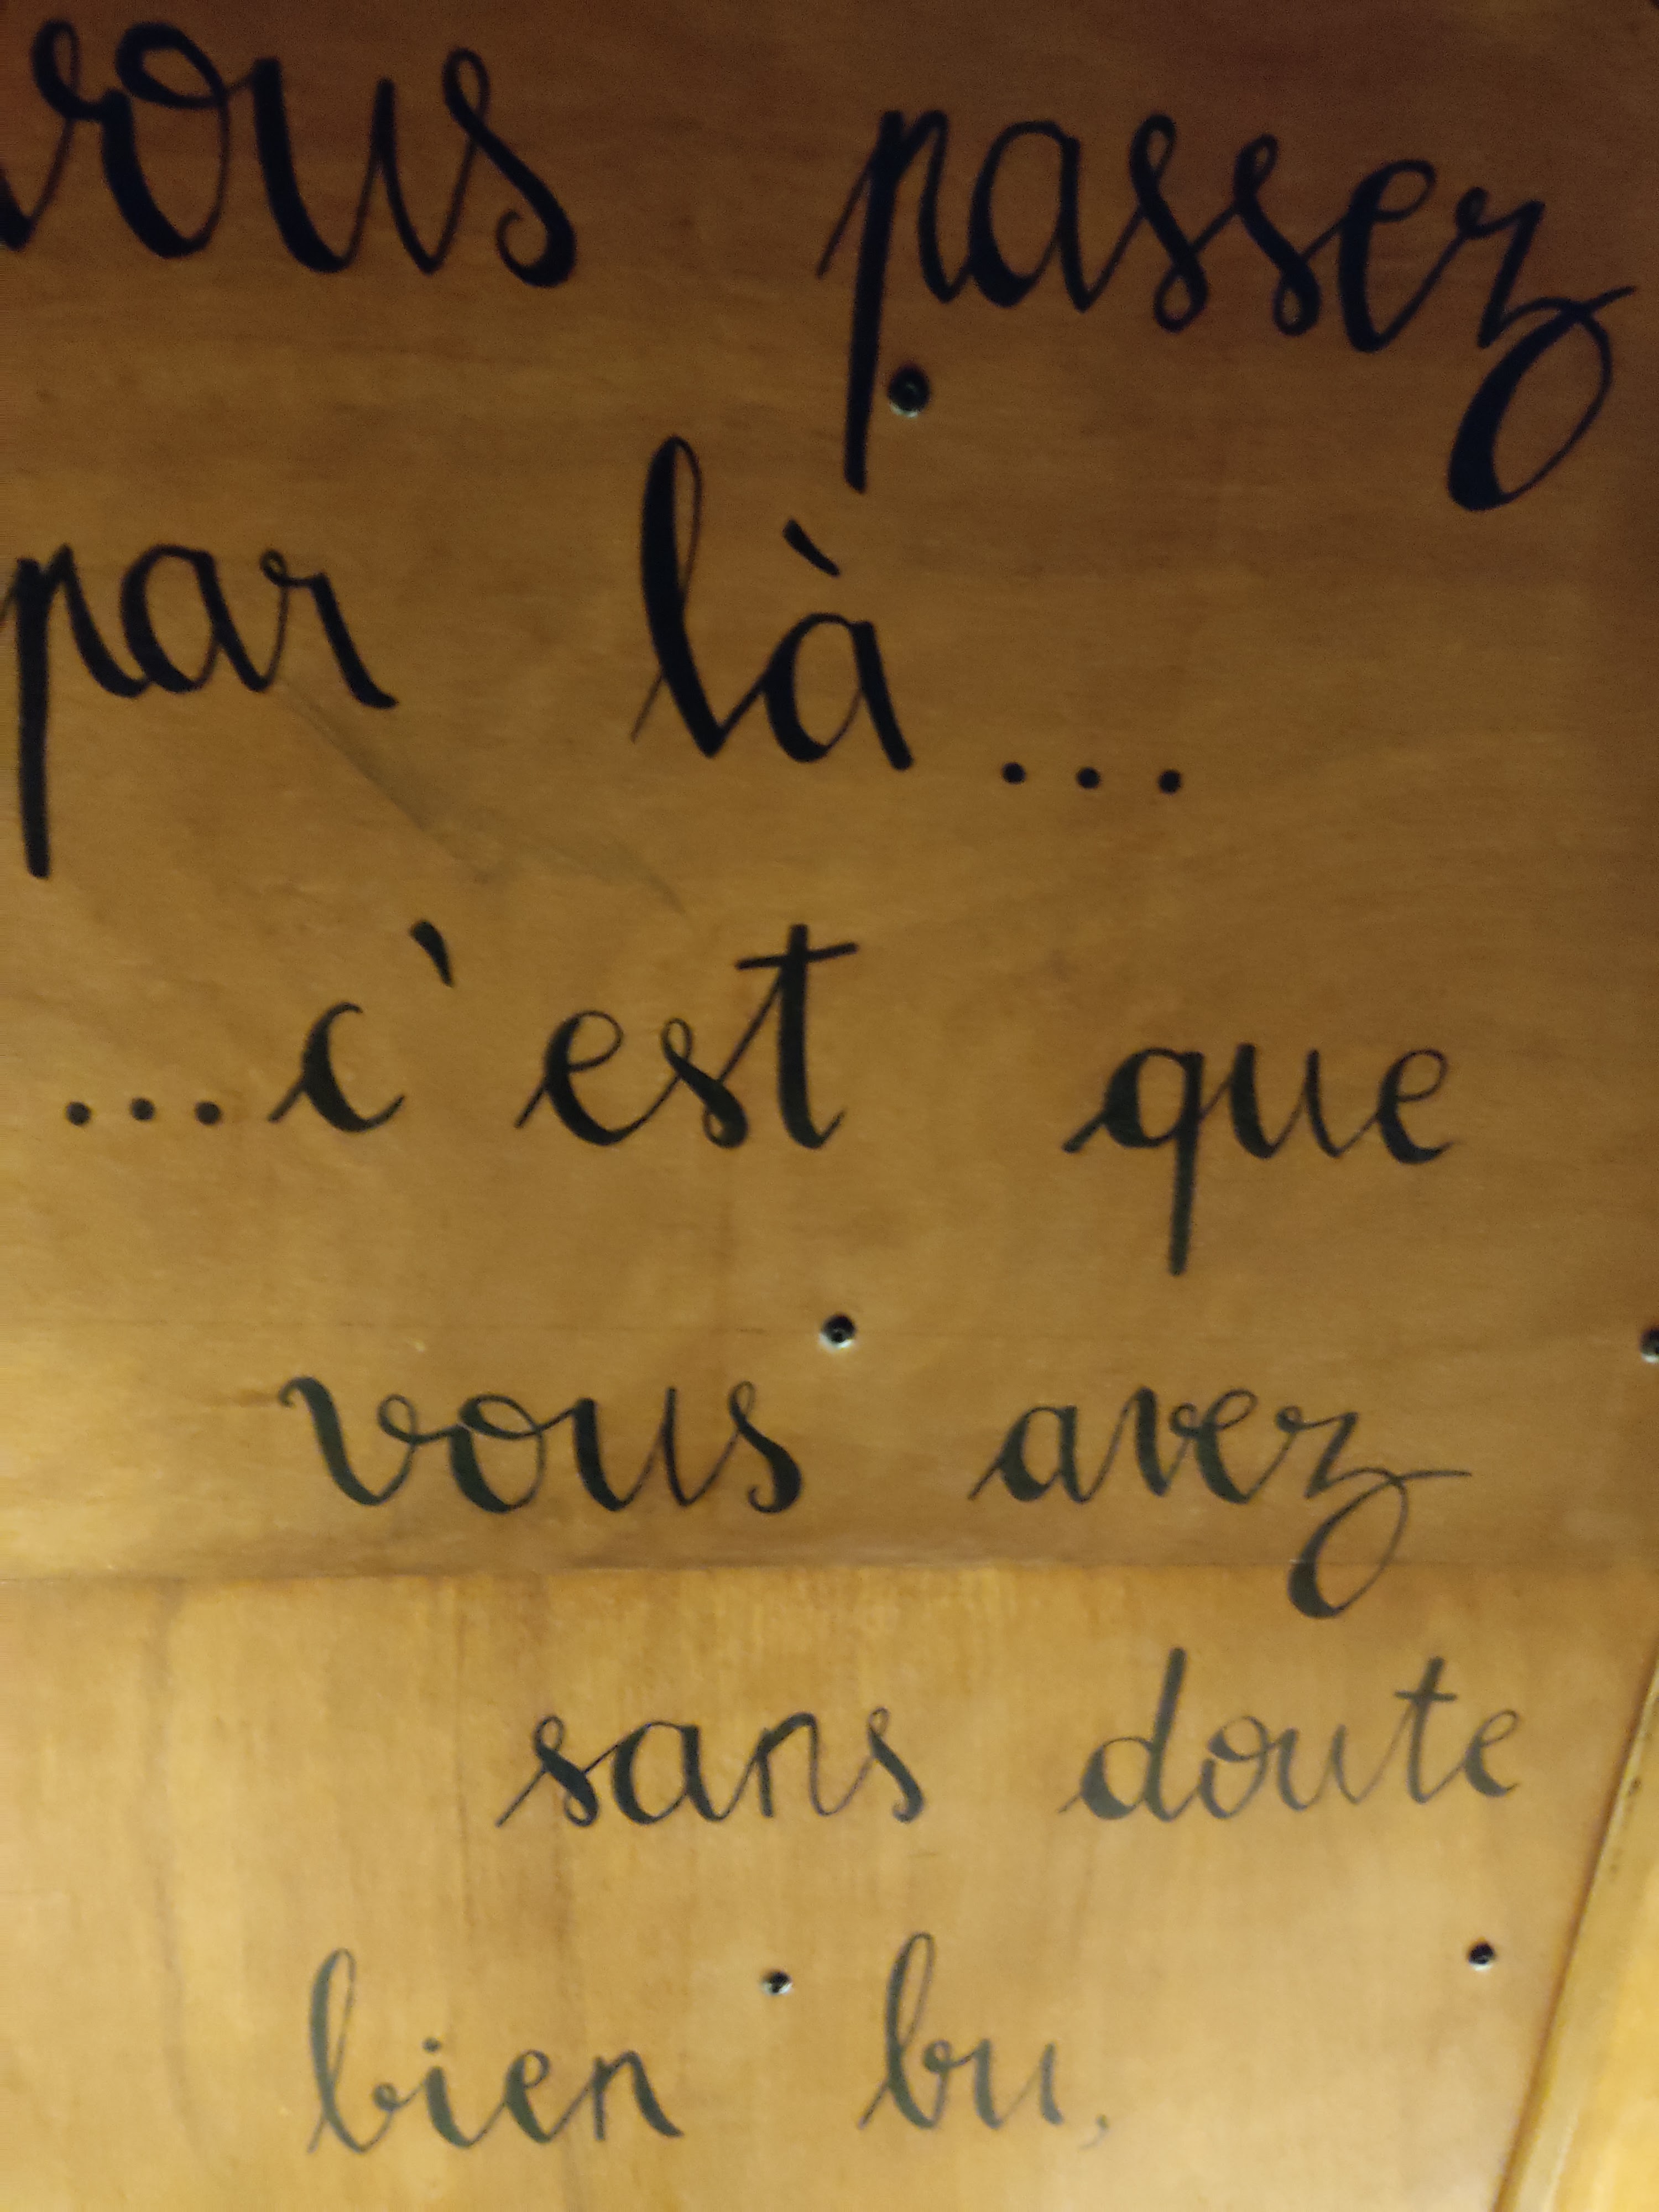 vous passez
par là...
...c'est que
vous avez
sans doute
bien bu,